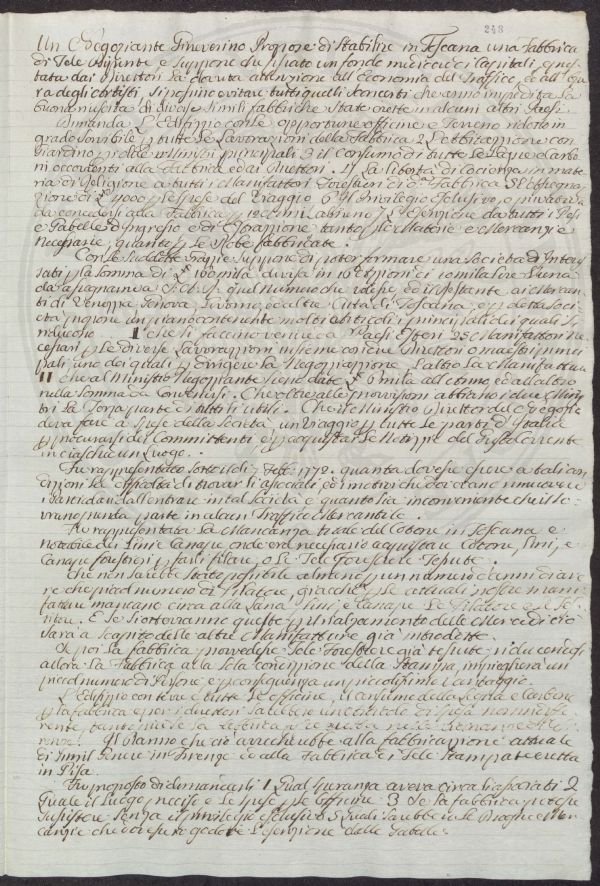 248
Un Negoziante Ginevrino Propone di Stabilire in Toscana una Fabbrica
di Tele dipinte e suppone che, stato un fondo di capitali, ques
tata dai Direttori la dovuta attenzione all'Economia del Traffico, e all'
ra degli Artisti, si possino evitare tutti quelli che anno impedita la
buona riuscita di diverse simili fabbriche state erette in alcuni altri Paesi.
Dimanda 1. L'Edifizio con le opportune officine e Terreno ridotto in
grado servibile p tutte le Lavorazioni della Fabbrica 2 L'abitazione con
Giardino p Ministri principali 3 il consumo di tutte le Legne e carbo
ni occorrenti alla fabbrica ed ai Direttori. 4 La libertà di coscienza in mate
ria di Religione a tutti i Manifattori Forestieri 5 L'assegna
zione di 1000 p le spese del Viaggio 6 Il Privilegio Esclusivo, o privativa
da concedersi alla fabbrica p anni almeno 7 L'Esenzione da tutti i Dazi
e Gabelle d'Ingresso e di Estrazione tanto p le Materie e Mercanzie
necessarie, quanto p le Robe fabbricate.
Con le suddette Grazie suppone di poter formare una Società di Interes
sati p la somma di 160 mila divisa in 16 Azioni di 10 mila lire l'una
da quel numero che volesse, ed il restante ai Mercan
ti di Venezia Genova, Livorno, ed altre Città di Toscana, e p detta Soci
età propone un piano contenente molti articoli i principali dei quali si
riducono 1 che si faccino venire da Paesi Esteri 25 Manifattori ne
cessari p le diverse Lavorazioni insieme con due Direttori o maestri princi
pali uno dei quali p dirigere la Negoziazione l'altro la Manifattura
11 che al Ministro Negoziante siano date 6 mila all'anno, ed all'altro
nulla somma da convenirsi. Che oltre alle provvisioni abbiano i due Minis
tri la Terza parte di tutti i utili. Che il Ministro Direttore del Negozio
deva fare a spese della Società un Viaggio p tutte le parti d'Italia
p procurarsi dei Committenti, e p acquistar le Notizie del Gusto corrente
in ciascheun Luogo.
Fu rappresentato sotto il di 7 1772. quanta dovesse essere a tali con
dizioni la difficoltà di trovar li associati, ed i motivi che dovevano rimuovere
i dall'entrare in tal Società e quanto sia inconveniente che il So
vrano prenda parte in alcun Traffico Mercantile.
Fu rappresentata la mancanza totale del Cotone in Toscana e
notabile dei Lini e Canape onde era necessario acquistare Cotone, Lini, e
Canape forestieri p farli filare, o le Tele forestiere Tessute.
Che non sarebbe stato possibile almeno p un numero d'anni di ave
re che piccol numero di Filatore, giacché p le attuali nostre mani
fatture mancano circa alla Lana, Lini e Canape le Filatore e i Tes
sitori. E se si otterranno queste p il rialzamento delle Mercedi ciò
sarà a scapito delle altre Manifatture già introdotte.
Se poi la fabbrica provvedesse Tele Forestiere già tessute, riducendosi
allora la Fabbrica alla sola condizione della Stampa, impiegherà un
piccol numero di Persone, e p conseguenza un piccolissimo vantaggio.
L'Edifizio con terre e tutte le officine, il consumo della Legna e carbone
p la fabbrica e per i direttori sarebbe un articolo di spesa non
rente, tanto
Il Danno che ciò arrecherebbe alla fabbricazione attuale
di simil Genere in Firenze, ed alla Fabbrica di Tele Stampate eretta
in Pisa.
Fu proposto di dimandarli 1 Qual Guranza aveva circa li associati 2
Quale il luogo preciso e le spese p le officine 3 Se la fabbrica potesse
sussistere senza il privilegio esclusivo 5 Quali sarebbero le Droghe e Mer
canzie che dovessero godere l'esenzione dalle Gabelle.